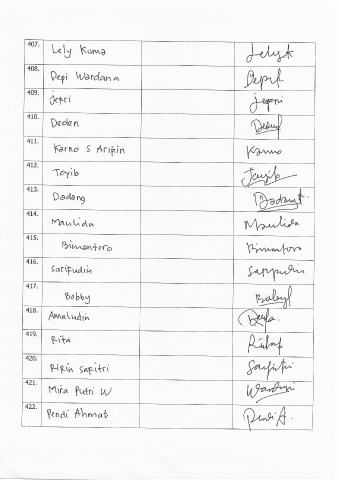 407. Lely Kuma Lely
408. Depi Wardana Depi
409. Jepri Jepri
410. Deden
411. Karno S Aripin Karno
412. Tayib Tayib
413. Dadang Dadang
414. Maulida Maulida
415. Bimantoro Bimantoro
416. Saripudin Saripudin
417. Bobby
418. Amaludin
419. Rita
420. Ririn Sapitri Sapitri
421. Mira Putri W
422. Pendi Ahmat Pendi A.